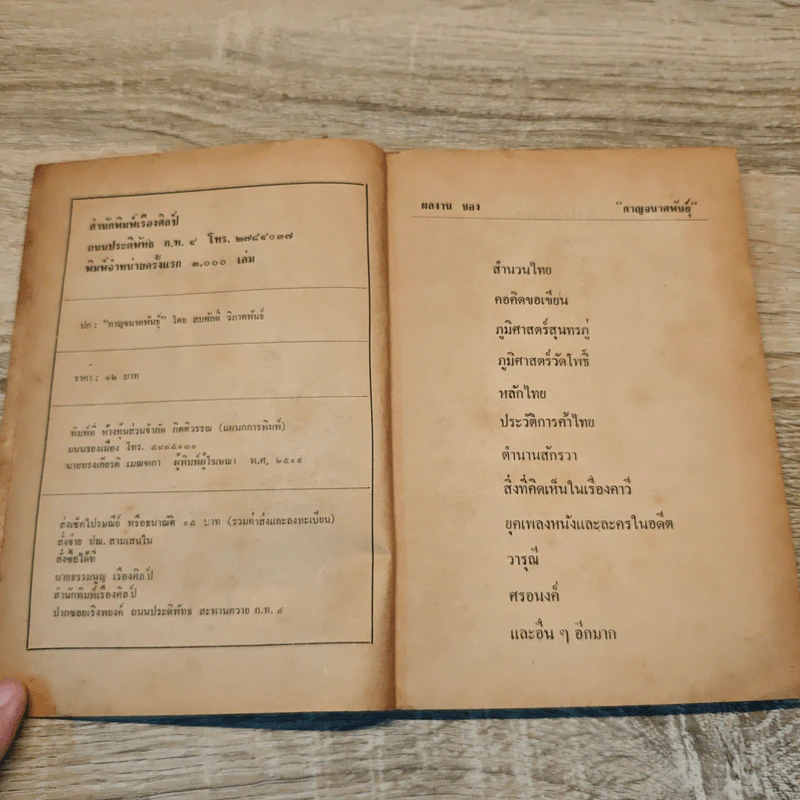 สำนักพิมพ์เรืองศิลป์
ถนนประดิพัทธ ก.ท. ๔ โทร. ๒๗๘๔๐๓๗
พิมพ์จำหน่ายครั้งแรก ๓,๐๐๐ เล่ม
ปก : "กาญจนาคพันธุ์" โดย สมศักดิ์ วิภาคพันธ์
ราคา : ๑๒ บาท
พิมพ์ที่ ห้างหุ้นส่วนจำกัด กิตติวรรณ (แผนกการพิมพ์)
ถนนรองเมือง โทร.
นายทรงเกียรติ เมณฑกา ผู้พิมพ์ผู้โฆษณา พ.ศ. ๒๕๑๙
ส่งเช็คไปรษณีย์ หรือธนาณัติ ๑๕ บาท (รวมค่าส่งและลงทะเบียน)
สั่งจ่าย ปณ. สามเสนใน
สั่งซื้อได้ที่
นายธรรมนูญ เรืองศิลป์
สำนักพิมพ์เรืองศิลป์
ปากซอยเริงพยงค์ ถนนประดิพัทธ สะพานควาย ก.ท. ๔
ผลงาน ของ "กาญจนาคพันธุ์"
สำนวนไทย
คอคิดขอเขียน
ภูมิศาสตร์สุนทรภู่
ภูมิศาสตร์วัดโพธิ์
หลักไทย
ประวัติการค้าไทย
ตำนานสักรวา
สิ่งที่คิดเห็นในเรื่องคาวี
ยุคเพลงหนังและละครในอดีต
วารุณี
ศรอนงค์
และอื่น ๆ อีกมาก